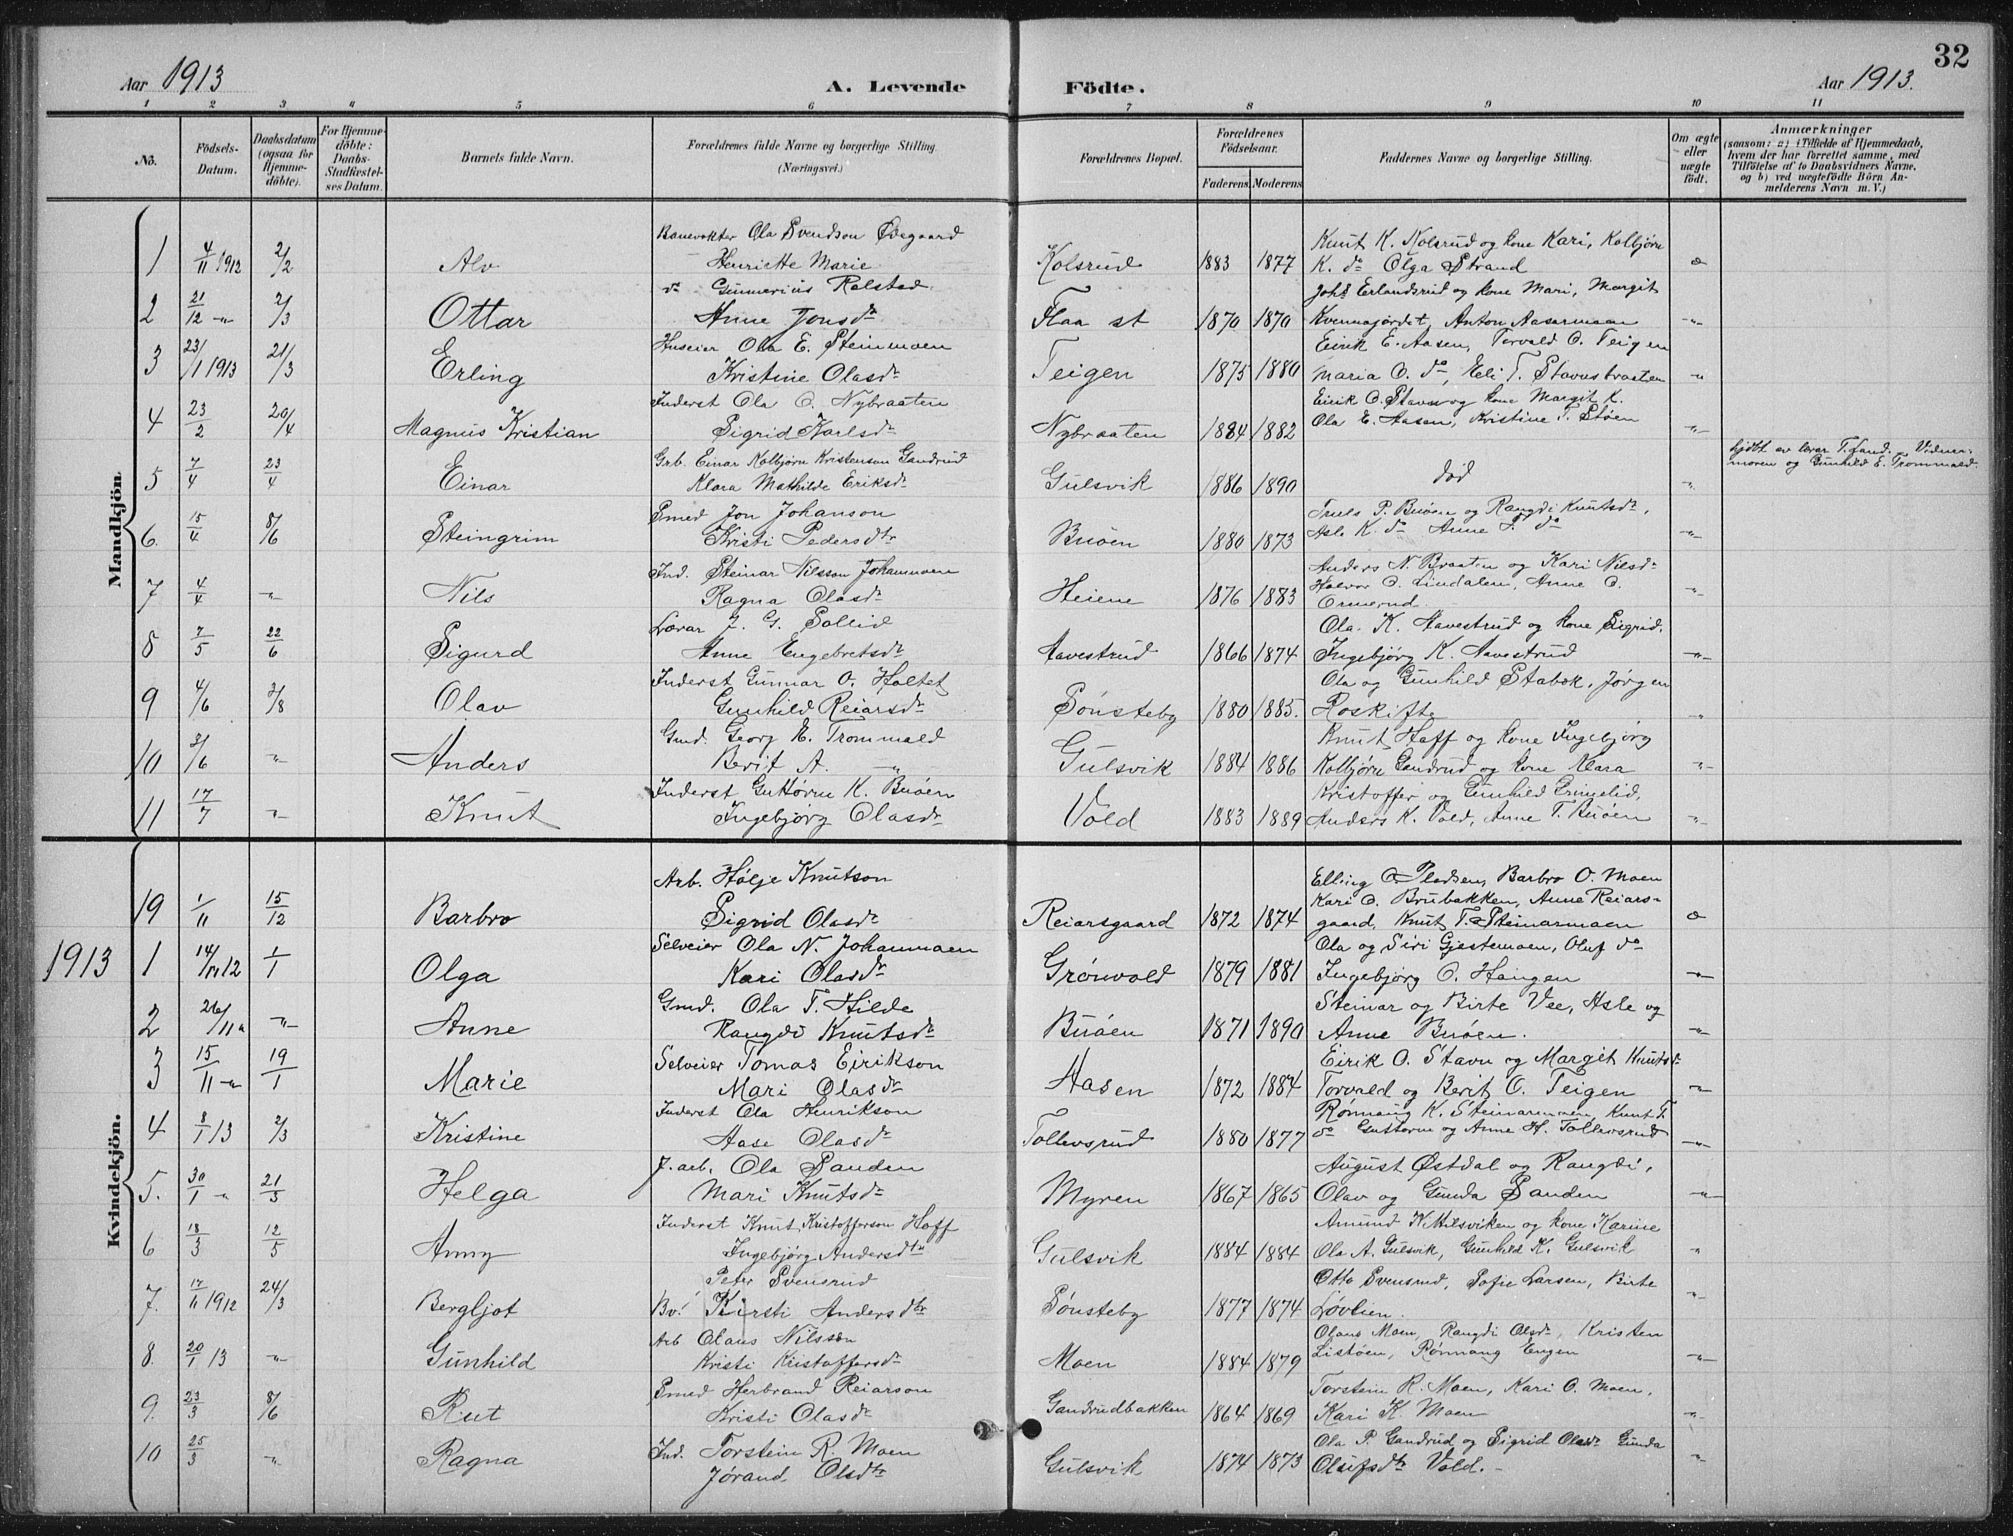 32
Aar 1913
A. Levende Födte.
Aar 1913.
1 2 3 4 5 6 7 8 9 10 11
No.
Födsels-Datum.
Daabsdatum (ogsaa for Hjemmedöbte).
For Hjemmedöbte: Daabs-Stadfæstelses Datum.
Barnets fulde Navn.
Forældrenes fulde Navne og borgerlige Stilling (Næringsvei.)
Forældrenes Bopæl.
Forældrenes Födselsaar.
Faderens. Moderens.
Faddernes Navne og borgerlige Stilling.
Om ægte eller uægte födt.
Anmærkninger
(saasom: a) i Tilfælde af Hjemmedaab, hvem der har forrettet samme, med Tilföielse af to Daabsvidners Navne, og b) ved uægtefödte Börn Anmelderens Navn m. V.)
Mandkjön.
Banevokter Ola Svendson Øvegaard
1 4/11 1912 2/2 Alv Henriette Marie Kolsrud 1883 1877 Knut K. Kolsrud og kone Kari, Kolbjørn K. do Olga Strand
2 21/12 -"- 2/3 Ottar do Gunnerius Rolstad Anne Jonsdr Flaa st 1870 1870 Johs Erlandsrud og kone Mari, Margit Kvennajordet, Anton Aasarmoen -"-
3 23/1 1913 21/3 Erling Huseier Ola E. Steinmoen Kristine Olasdr Teigen 1875 1880 Eirik E. Aasen, Torvald O. Teigen Maria O. do, Eli T. Stavnsbraaten "
4 23/2 20/4 Magnus Kristian Inderst Ola O. Nybraaten Sigrid Karlsdr Nybraaten 1884 1882 Eirik O. Stavn og kone Margit K. Ola E. Aasen, Kristine T. Støen -"-
5 7/4 23/4 Einar Grb. Einar Kolbjørn Kristenson Gandrud Klara Mathilde Eriksdr Gulsvik 1886 1890 død -"- hjdbt av lærer T. Lund. moren og Gunhild E. Trommald.
6. 15/4 8/6 Steingrim Smed Jon Johanson Kristi Pedersdtr Buøen 1880 1873 Truls P. Buøen og Rangdi Knutsdr, Asle K. do Anne T. do -"-
7 4/4 -"- Nils Ind. Steinar Nilsson Johanmoen Ragna Olasdr Heiene 1876 1883 Anders N. Braaten og Kari Nilsdr Halvor O. Lindalen, Anne O. Ormerud. -"-
8 7/5 22/6 Sigurd Lærar J. G. Sollid Anne Engebretsdr Aavestrud 1866 1874 Ola K. Aavestrud og kone Sigrid. Ingebjørg K. Aavestrud -"-
9 4/6 3/8 Olav Inderst Gunnar O. Holtet Gunhild Reiarsdr Sønsteby 1880 1885. Ola og Gunhild Stabok, Jørgen Roskifte -"-
10 3/6 -"- Anders Gmd. Georg E. Trommald Berit A. -"- Gulsvik 1884 1886 Knut Hoff og kone Ingebjørg Kolbjørn Gandrud og kone Klara -"-
11 17/7 -"- Knut Inderst Guttorm K. Buøen Ingebjørg Olasdr Vold 1883 1889 Kristoffer og Gunhild Ermelid, Anders K. Vold, Anne T. Buøen -"-
Kvindekjön.
19 1/11 15/12 Barbro Arb. Hølje Knutson Sigrid Olasdr Reiarsgaard 1872 1874 Elling O. Pladsen, Barbro O. Moen Kari O. Brubakken, Anne Reiarsgaard, Knut T. Steinarmoen
1913 1 14/11 12 1/1 Olga Selveier Ola N. Johanmoen Kari Olasdr Grønvold 1879 1881 Ola og Siri Gjestemoen, Oluf do Ingebjørg O. Haugen -"-
2 26/11 " -"- Anne Gmd. Ola T. Hilde Rangdi Knutsdr Buøen 1871 1890 Steinar og Birte Vee, Asle og Anne Buøen. -"-
3 15/11 -"- 19/1 Marie Selveier Tomas Eirikson Mari Olasdr Aasen 1872 1884 Eirik O. Stavn og Margit Knutsdr Torvald og Berit O. Teigen -"-
4 8/1 13 2/3 Kristine Inderst Ola Henrikson Aase Olasdr Tollevsrud 1880 1877 Rønnaug K. Steinarmoen, Knut T. do Guttorm og Anne H. Tollevsrud -"-
5. 30/1 " 21/3 Helga J. arb. Ola Sanden Mari Knutsdr Myren 1867 1865 August Østdal og Rangdi, Olav og Gunda Sanden -"-
6 18/3 12/5 Anny Inderst Knut Kristofferson Hoff Ingebjørg Andersdtr Gulsvik 1884 1884 Amund K. Milsviken og kone Karine Ola A. Gulsvik, Gunhild K. Gulsvik "
7. 17/11 1912 24/3 Bergljot Peter Svensrud Bv. Kirsti Andersdtr Sønsteby 1877 1874 Otto Svensrud, Sofie Larsen, Birte Løvlien. -"-
8. 20/1 13 -"- Gunhild Arb Olaus Nilsson Kristi Kristoffersdr Moen 1884 1879 Olaus Moen, Rangdi Olsdr, Kristen Listøen, Rønnaug Engen -"-
9. 23/3 8/6 Rut Smed Herbrand Reiarson Kristi Olasdr Gandrudbakken 1864 1869 Torstein R. Moen, Kari O. Moen, Kari K. Moen -"-
10 25/3 -"- Ragna Ind. Torstein R. Moen Jørand Olsdtr Gulsvik 1874 1873 Ola P. Gandrud og Sigrid Olasdr Gunda Olufsdtr Vold. -"-